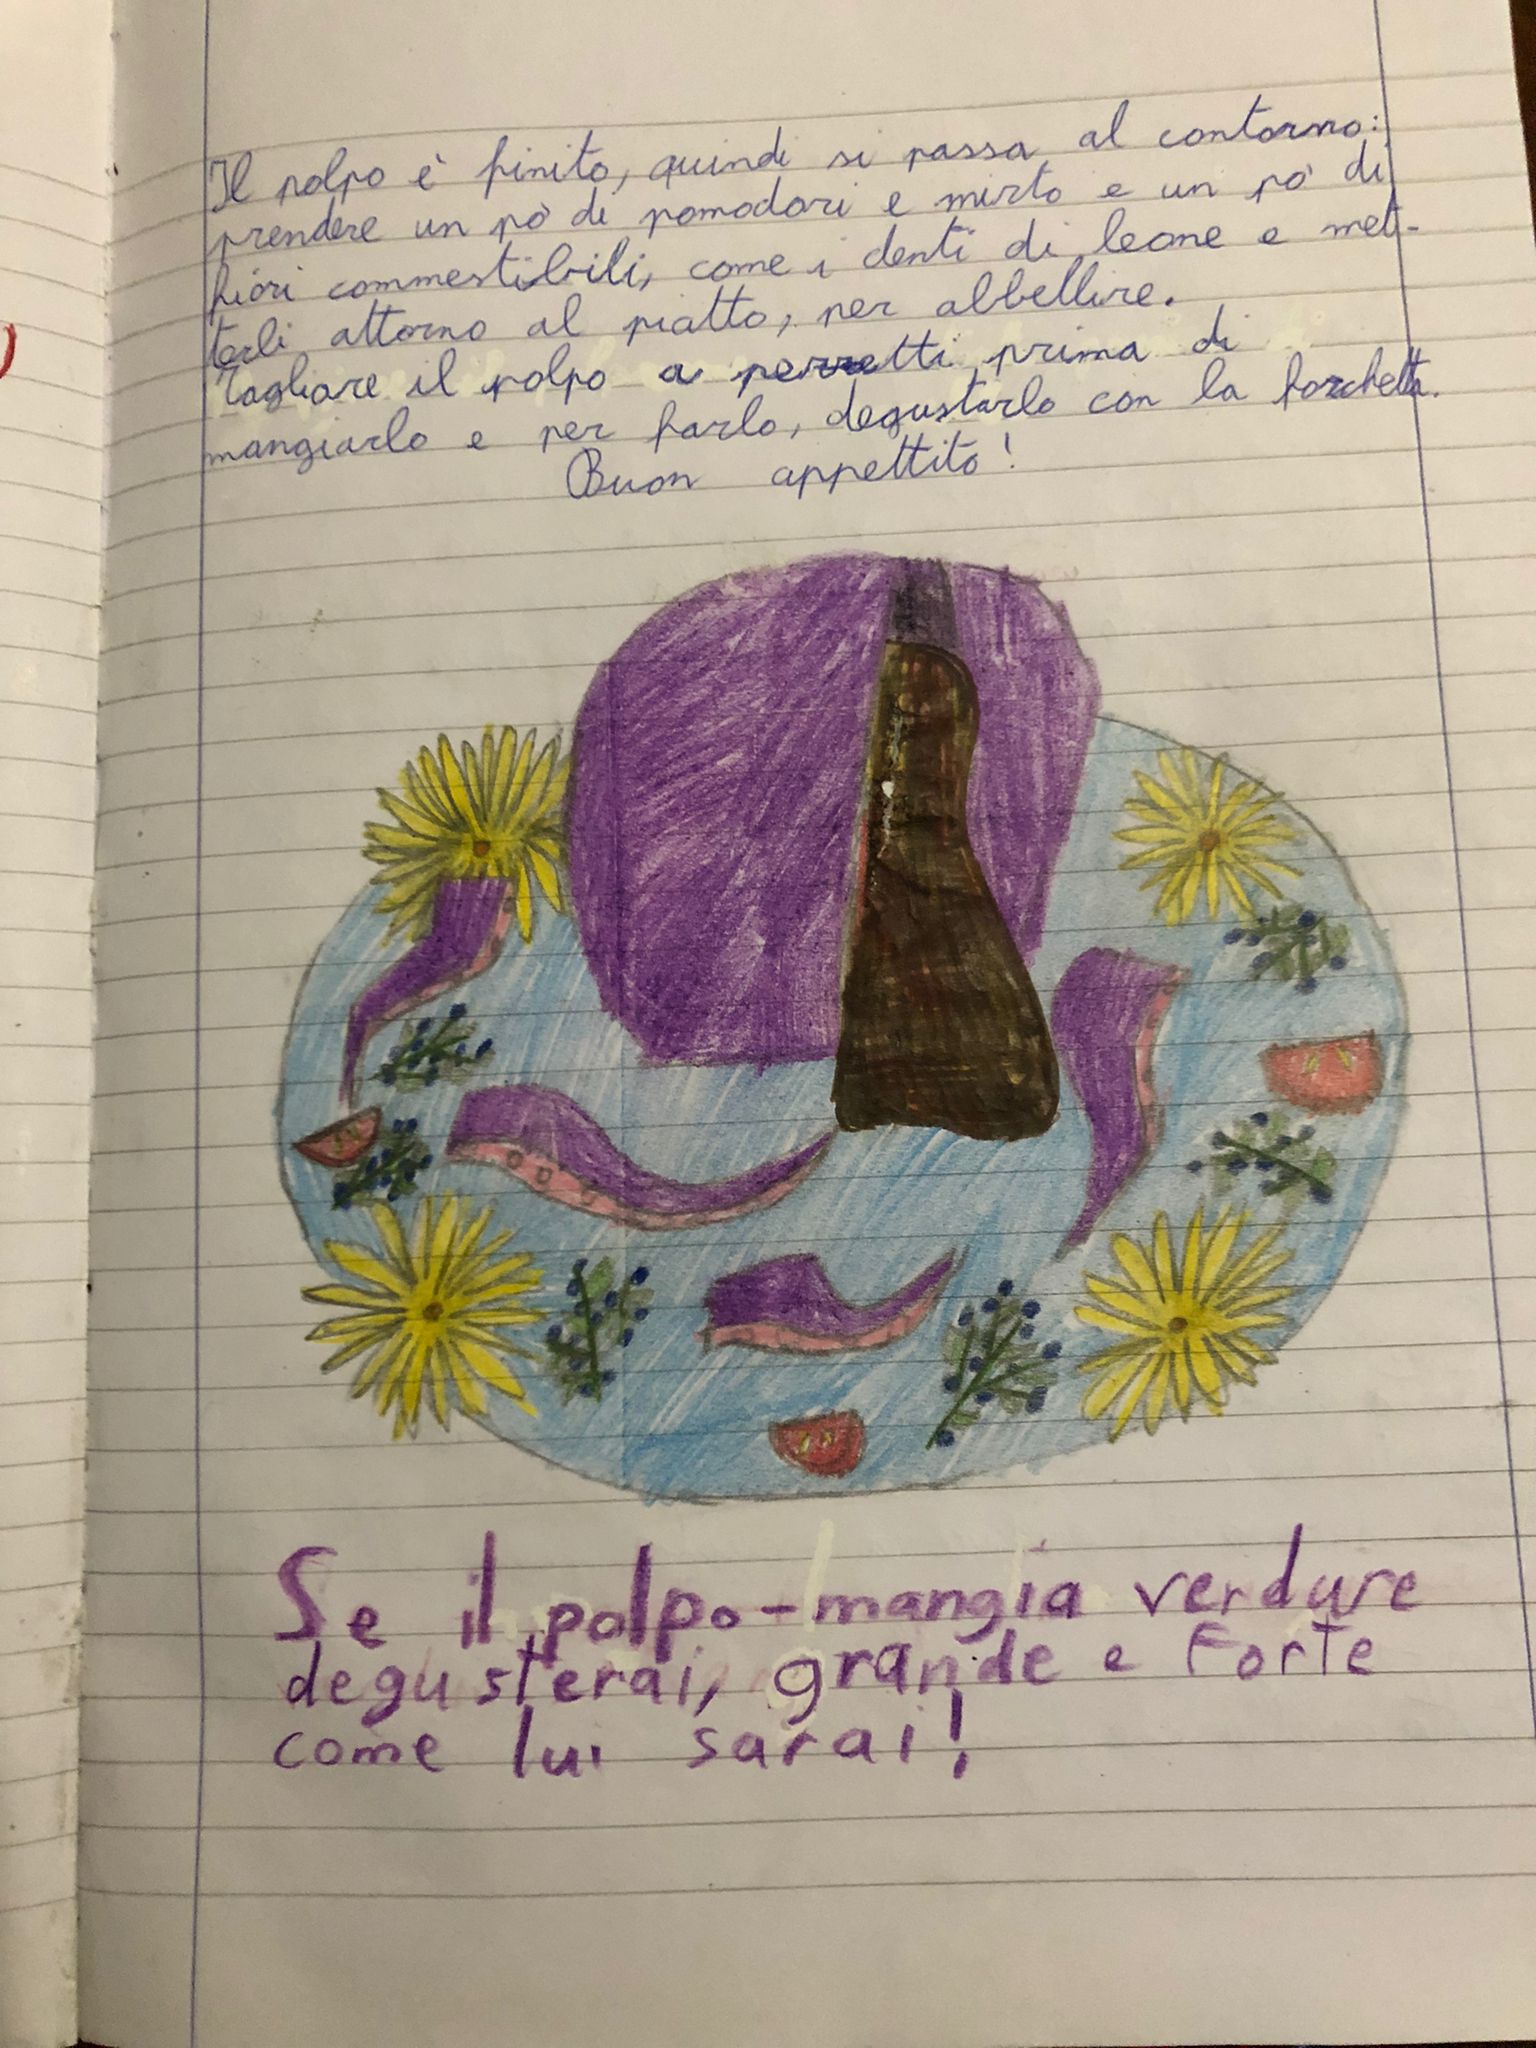 Il polpo è finito, quindi si passa al contorno:
prendere un pò di pomodori e mirto e un pò di
fiori commestibili, come i denti di leone e met-
terli attorno al piatto, per abbellire.
Tagliare il polpo a pezzetti prima di
mangiarlo e per farlo, degustarlo con la forchetta.
Buon appettito!
Se il polpo-mangia verdure
degusterai, grande e forte
come lui sarai!